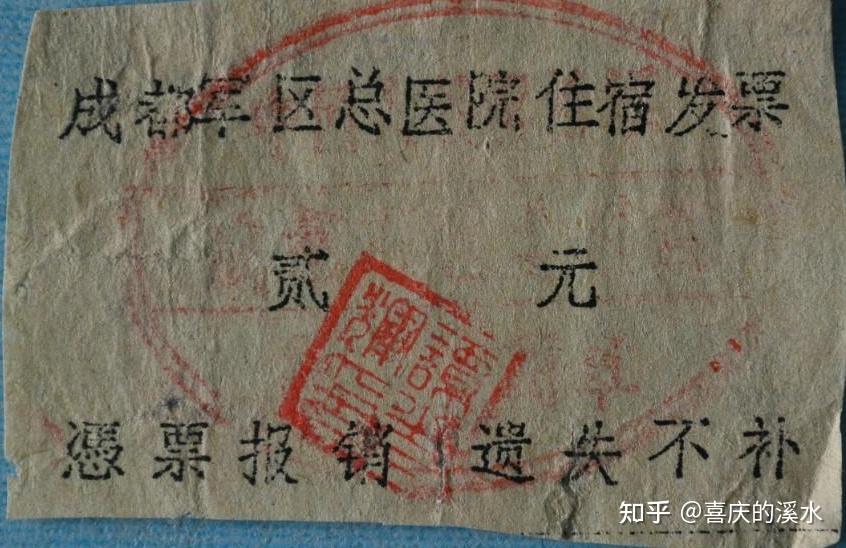 成都军区总医院住宿发票
贰 元
憑票报销 遗失不补
知乎 @喜庆的溪水